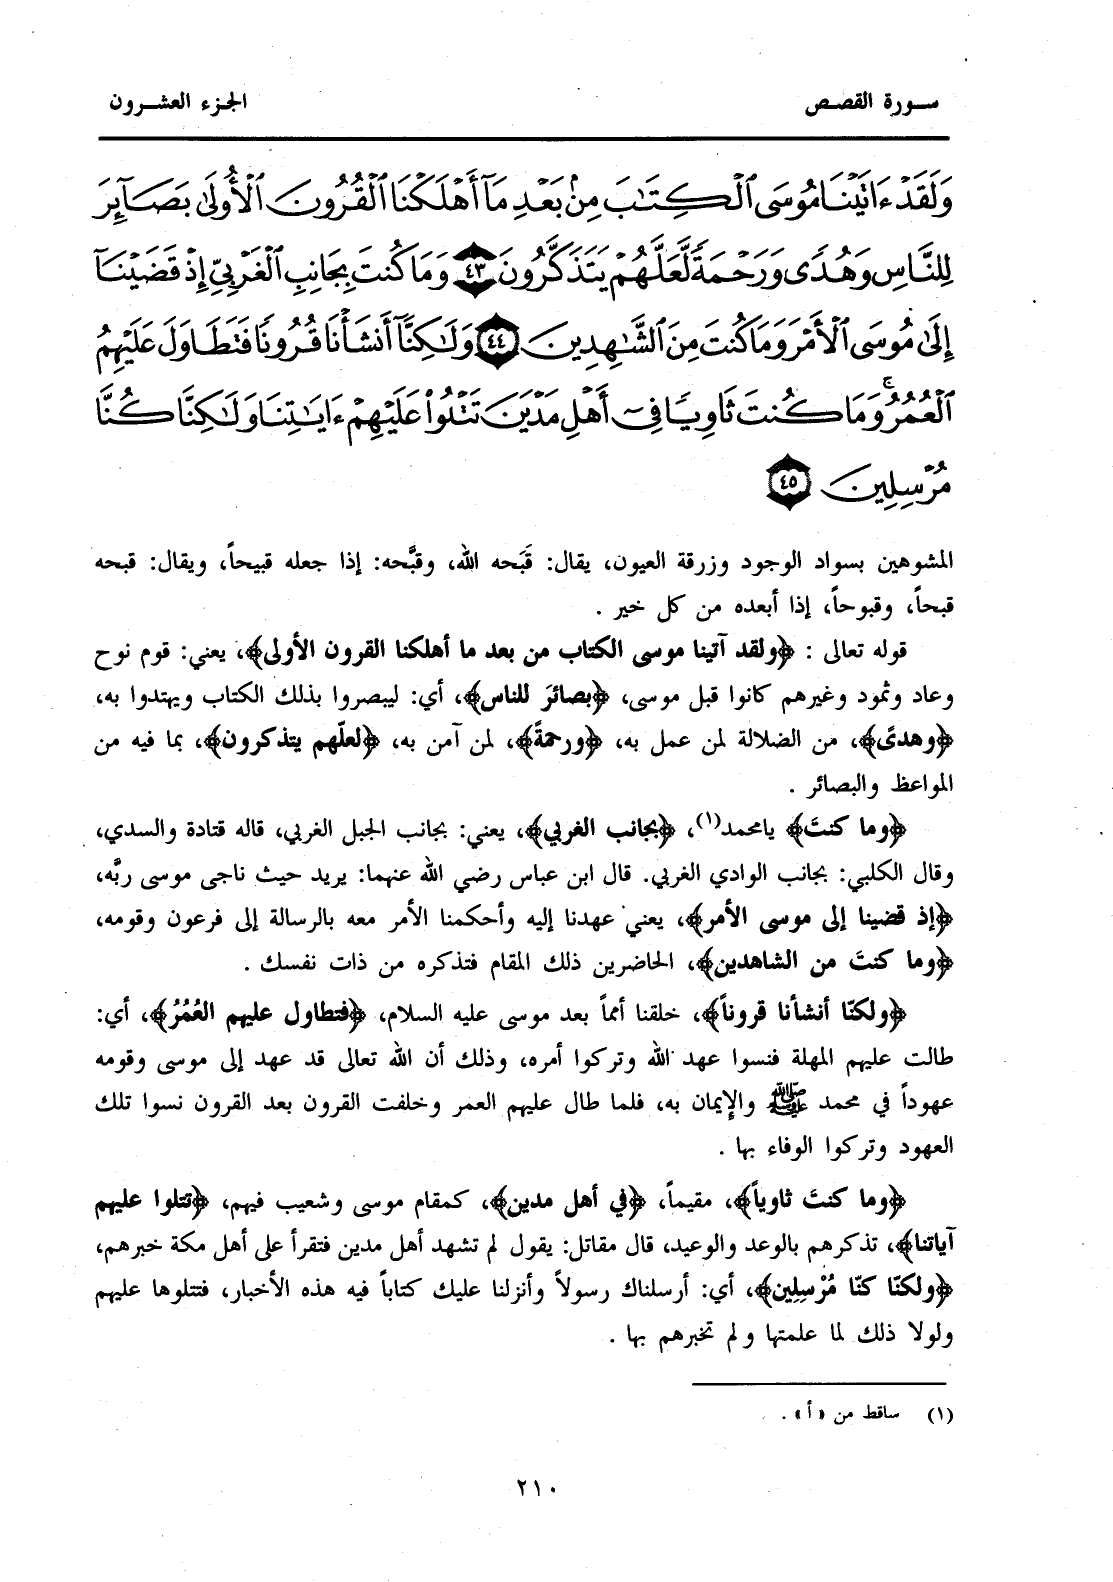 سورة القصص
الجزء العشرون
وَلَقَدْ ءَاتَيْنَا مُوسَى ٱلْكِتَٰبَ مِنۢ بَعْدِ مَآ أَهْلَكْنَا ٱلْقُرُونَ ٱلْأُولَىٰ بَصَآئِرَ
لِلنَّاسِ وَهُدًى وَرَحْمَةً لَّعَلَّهُمْ يَتَذَكَّرُونَ ٤٣ وَمَا كُنتَ بِجَانِبِ ٱلْغَرْبِىِّ إِذْ قَضَيْنَآ
إِلَىٰ مُوسَى ٱلْأَمْرَ وَمَا كُنتَ مِنَ ٱلشَّٰهِدِينَ ٤٤ وَلَٰكِنَّآ أَنشَأْنَا قُرُونًا فَتَطَاوَلَ عَلَيْهِمُ
ٱلْعُمُرُ ۚ وَمَا كُنتَ ثَاوِيًا فِىٓ أَهْلِ مَدْيَنَ تَتْلُوا۟ عَلَيْهِمْ ءَايَٰتِنَا وَلَٰكِنَّا كُنَّا
مُرْسِلِينَ ٤٥
المشوهين بسواد الوجود وزرقة العيون، يقال: قَبَحه الله، وقبَّحه: إذا جعله قبيحاً، ويقال: قبحه
قبحاً، وقبوحاً، إذا أبعده من كل خير .
قوله تعالى : ﴿ولقد آتينا موسى الكتاب من بعد ما أهلكنا القرون الأولى﴾، يعني: قوم نوح
وعاد وثمود وغيرهم كانوا قبل موسى، ﴿بصائرَ للناس﴾، أي: ليبصروا بذلك الكتاب ويهتدوا به،
﴿وهدىً﴾، من الضلالة لمن عمل به، ﴿ورحمةً﴾، لمن آمن به، ﴿لعلّهم يتذكرون﴾، بما فيه من
المواعظ والبصائر .
﴿وما كنتَ﴾ يامحمد(١)، ﴿بجانب الغربي﴾، يعني: بجانب الجبل الغربي، قاله قتادة والسدي،
وقال الكلبي: بجانب الوادي الغربي. قال ابن عباس رضي الله عنهما: يريد حيث ناجى موسى ربَّه،
﴿إذ قضينا إلى موسى الأمر﴾، يعني عهدنا إليه وأحكمنا الأمر معه بالرسالة إلى فرعون وقومه،
﴿وما كنتَ من الشاهدين﴾، الحاضرين ذلك المقام فتذكره من ذات نفسك .
﴿ولكنّا أنشأنا قروناً﴾، خلقنا أمماً بعد موسى عليه السلام، ﴿فتطاول عليهم العُمُرُ﴾، أي:
طالت عليهم المهلة فنسوا عهد الله وتركوا أمره، وذلك أن الله تعالى قد عهد إلى موسى وقومه
عهوداً في محمد ﷺ والإيمان به، فلما طال عليهم العمر وخلفت القرون بعد القرون نسوا تلك
العهود وتركوا الوفاء بها .
﴿وما كنتَ ثاوياً﴾، مقيماً، ﴿في أهل مدين﴾، كمقام موسى وشعيب فيهم، ﴿تتلوا عليهم
آياتنا﴾، تذكرهم بالوعد والوعيد، قال مقاتل: يقول لم تشهد أهل مدين فتقرأ على أهل مكة خبرهم،
﴿ولكنّا كنّا مُرْسِلِين﴾، أي: أرسلناك رسولاً وأنزلنا عليك كتاباً فيه هذه الأخبار، فتتلوها عليهم
ولولا ذلك لما علمتها ولم تخبرهم بها .
(١) ساقط من «أ» .
٢١٠